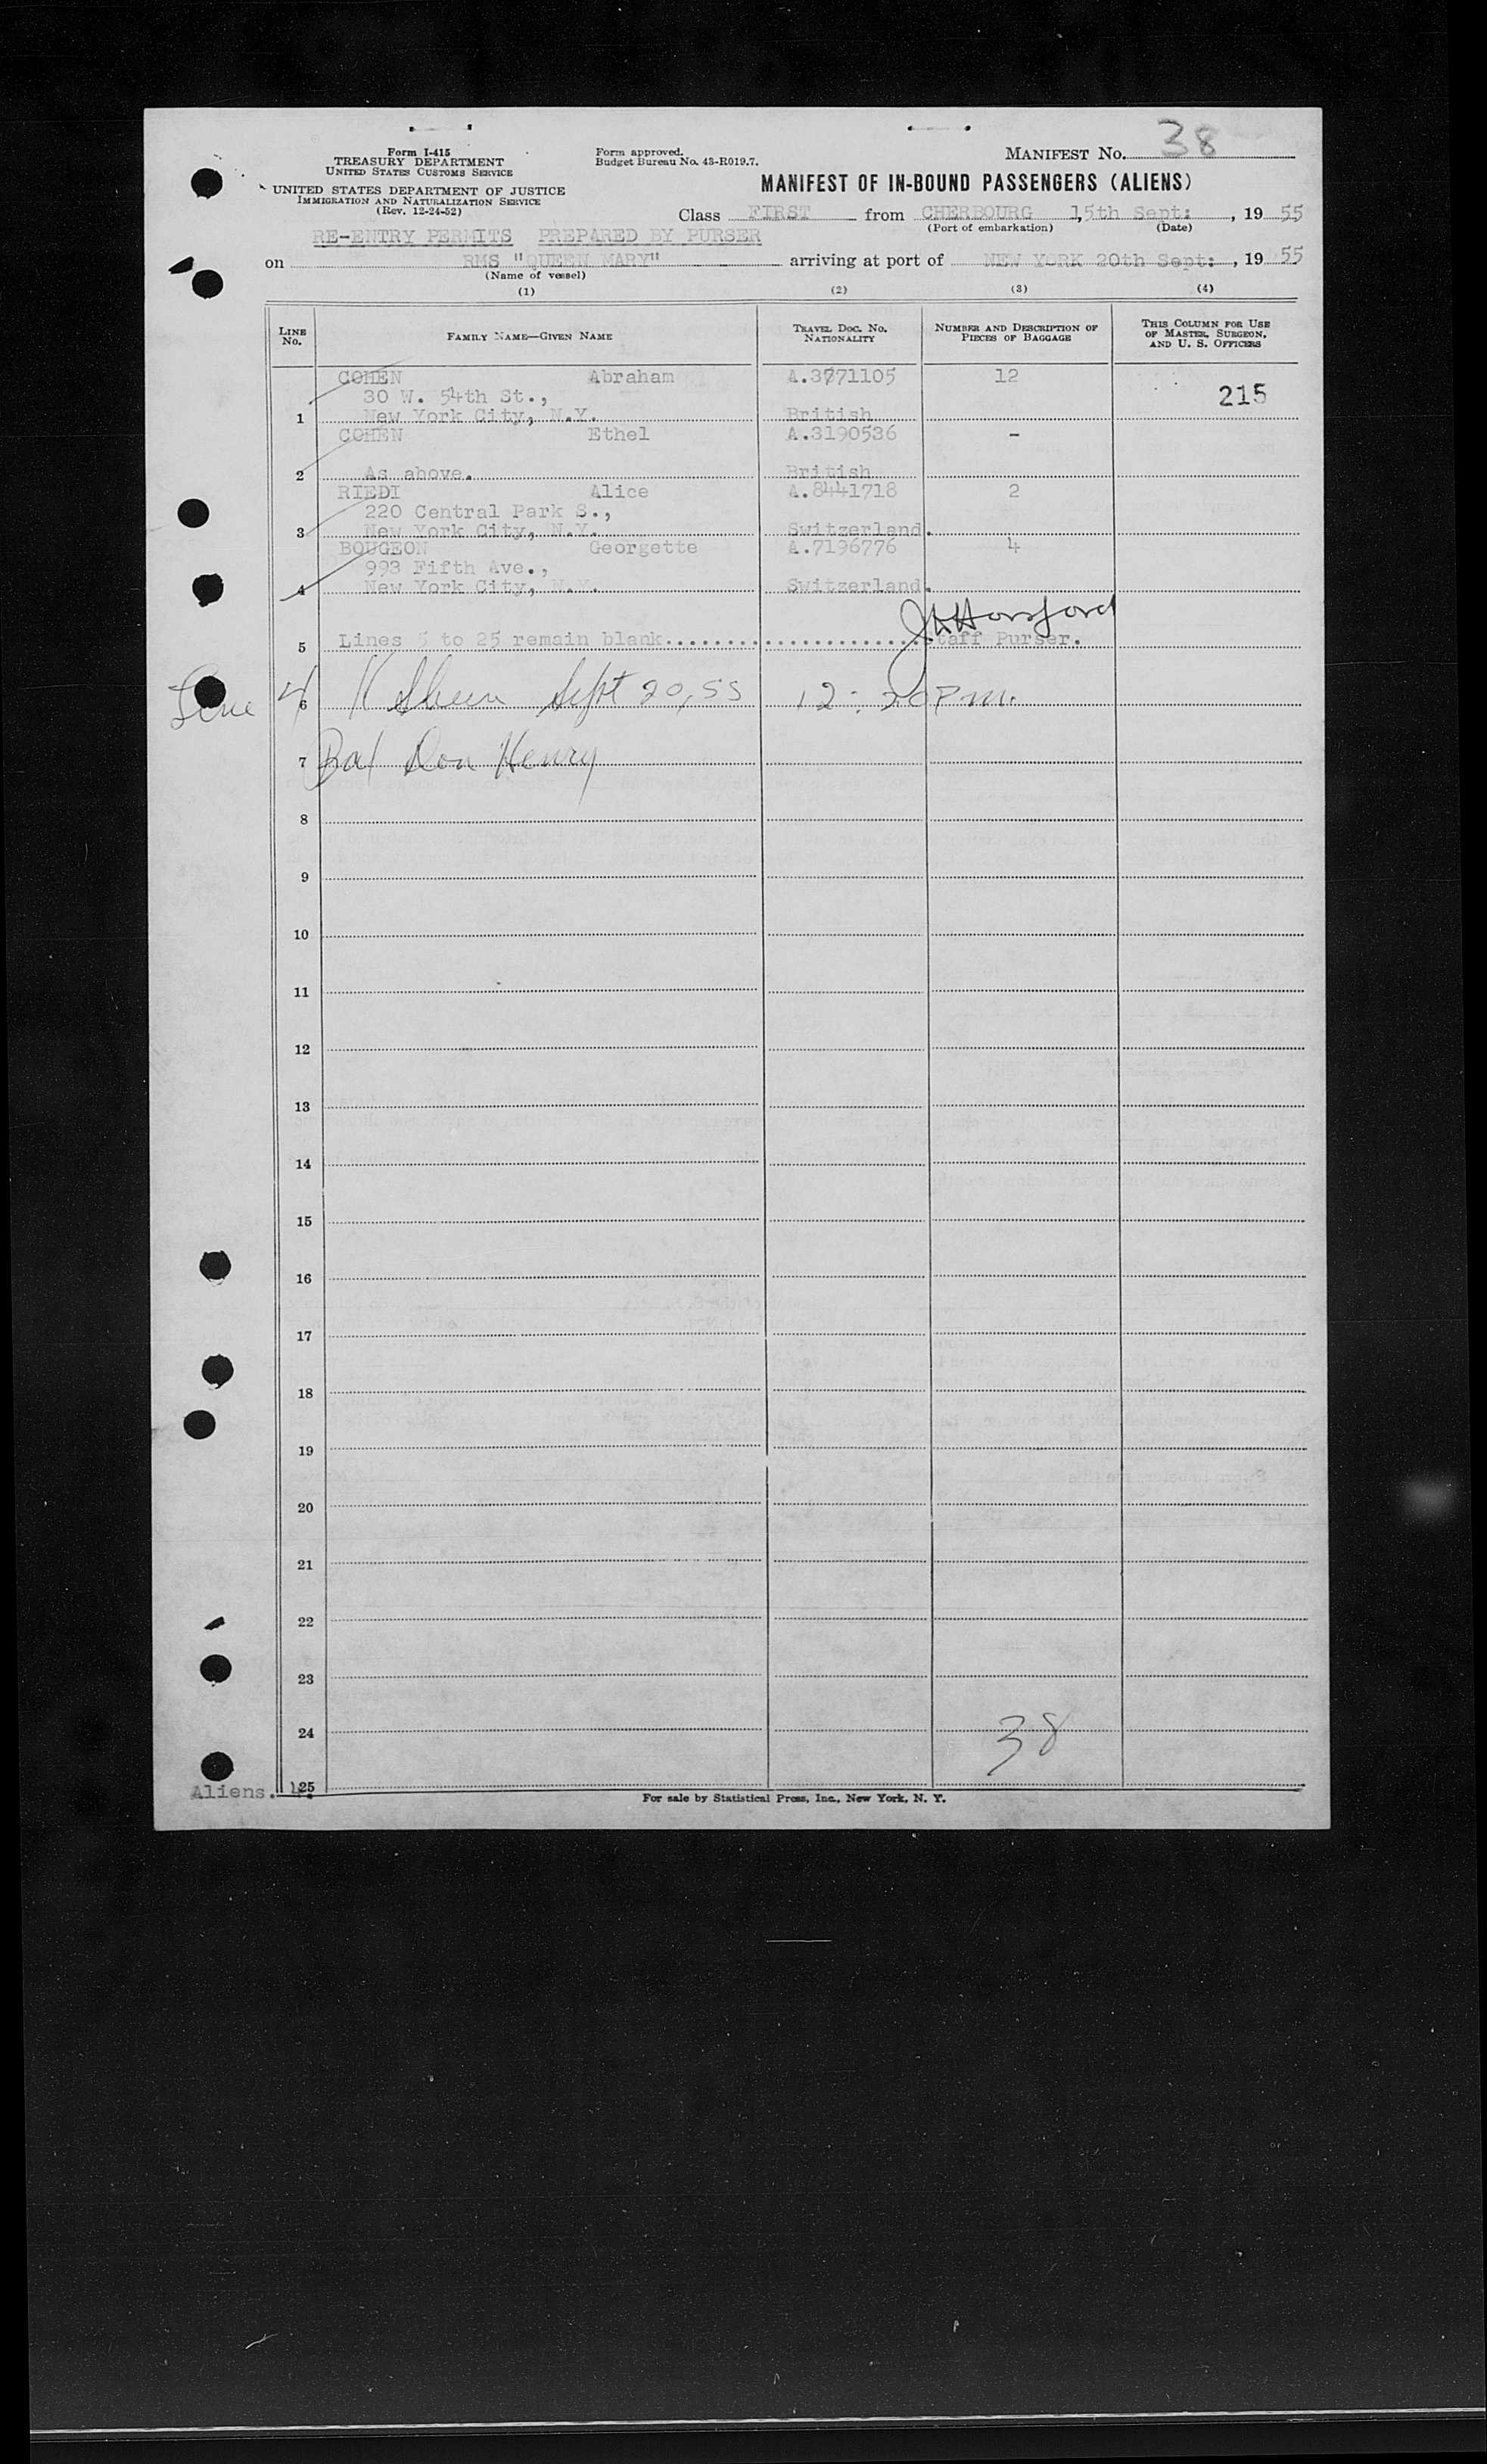 Form I-415
TREASURY DEPARTMENT
UNITED STATES CUSTOMS SERVICE
UNITED STATES DEPARTMENT OF JUSTICE
IMMIGRATION AND NATURALIZATION SERVICE
(Rev. 12-24-52)
Form approved.
Budget Bureau No. 43-R019.7.
MANIFEST NO. 38
MANIFEST OF IN-BOUND PASSENGERS (ALIENS)
Class FIRST from CHERBOURG 15th Sept: , 19 55
(Port of embarkation) (Date)
RE-ENTRY PERMITS PREPARED BY PURSER
on RMS "QUEEN MARY" arriving at port of NEW YORK 20th Sept: , 19 55
(Name of vessel)
(1) (2) (3) (4)
LINE NO. FAMILY NAME—GIVEN NAME TRAVEL DOC. NO. NATIONALITY NUMBER AND DESCRIPTION OF PIECES OF BAGGAGE THIS COLUMN FOR USE OF MASTER, SURGEON, AND U. S. OFFICERS
COHEN Abraham A.3771105 12
30 W. 54th St., 215
1 New York City, N.Y. British
COHEN Ethel A.3190536 -
2 As above. British
RIEDI Alice A.8441718 2
220 Central Park S.,
3 New York City, N.Y. Switzerland.
BOUGEON Georgette A.7196776 4
993 Fifth Ave.,
4 New York City, N.Y. Switzerland.
5 Lines 5 to 25 remain blank...................... Staff Purser.
Line 4 6 Sept 20, 55 12:20 P.m.
7 Bal Don Henry
8
9
10
11
12
13
14
15
16
17
18
19
20
21
22
23
24 38
Aliens. 4. 25
For sale by Statistical Press, Inc., New York, N. Y.